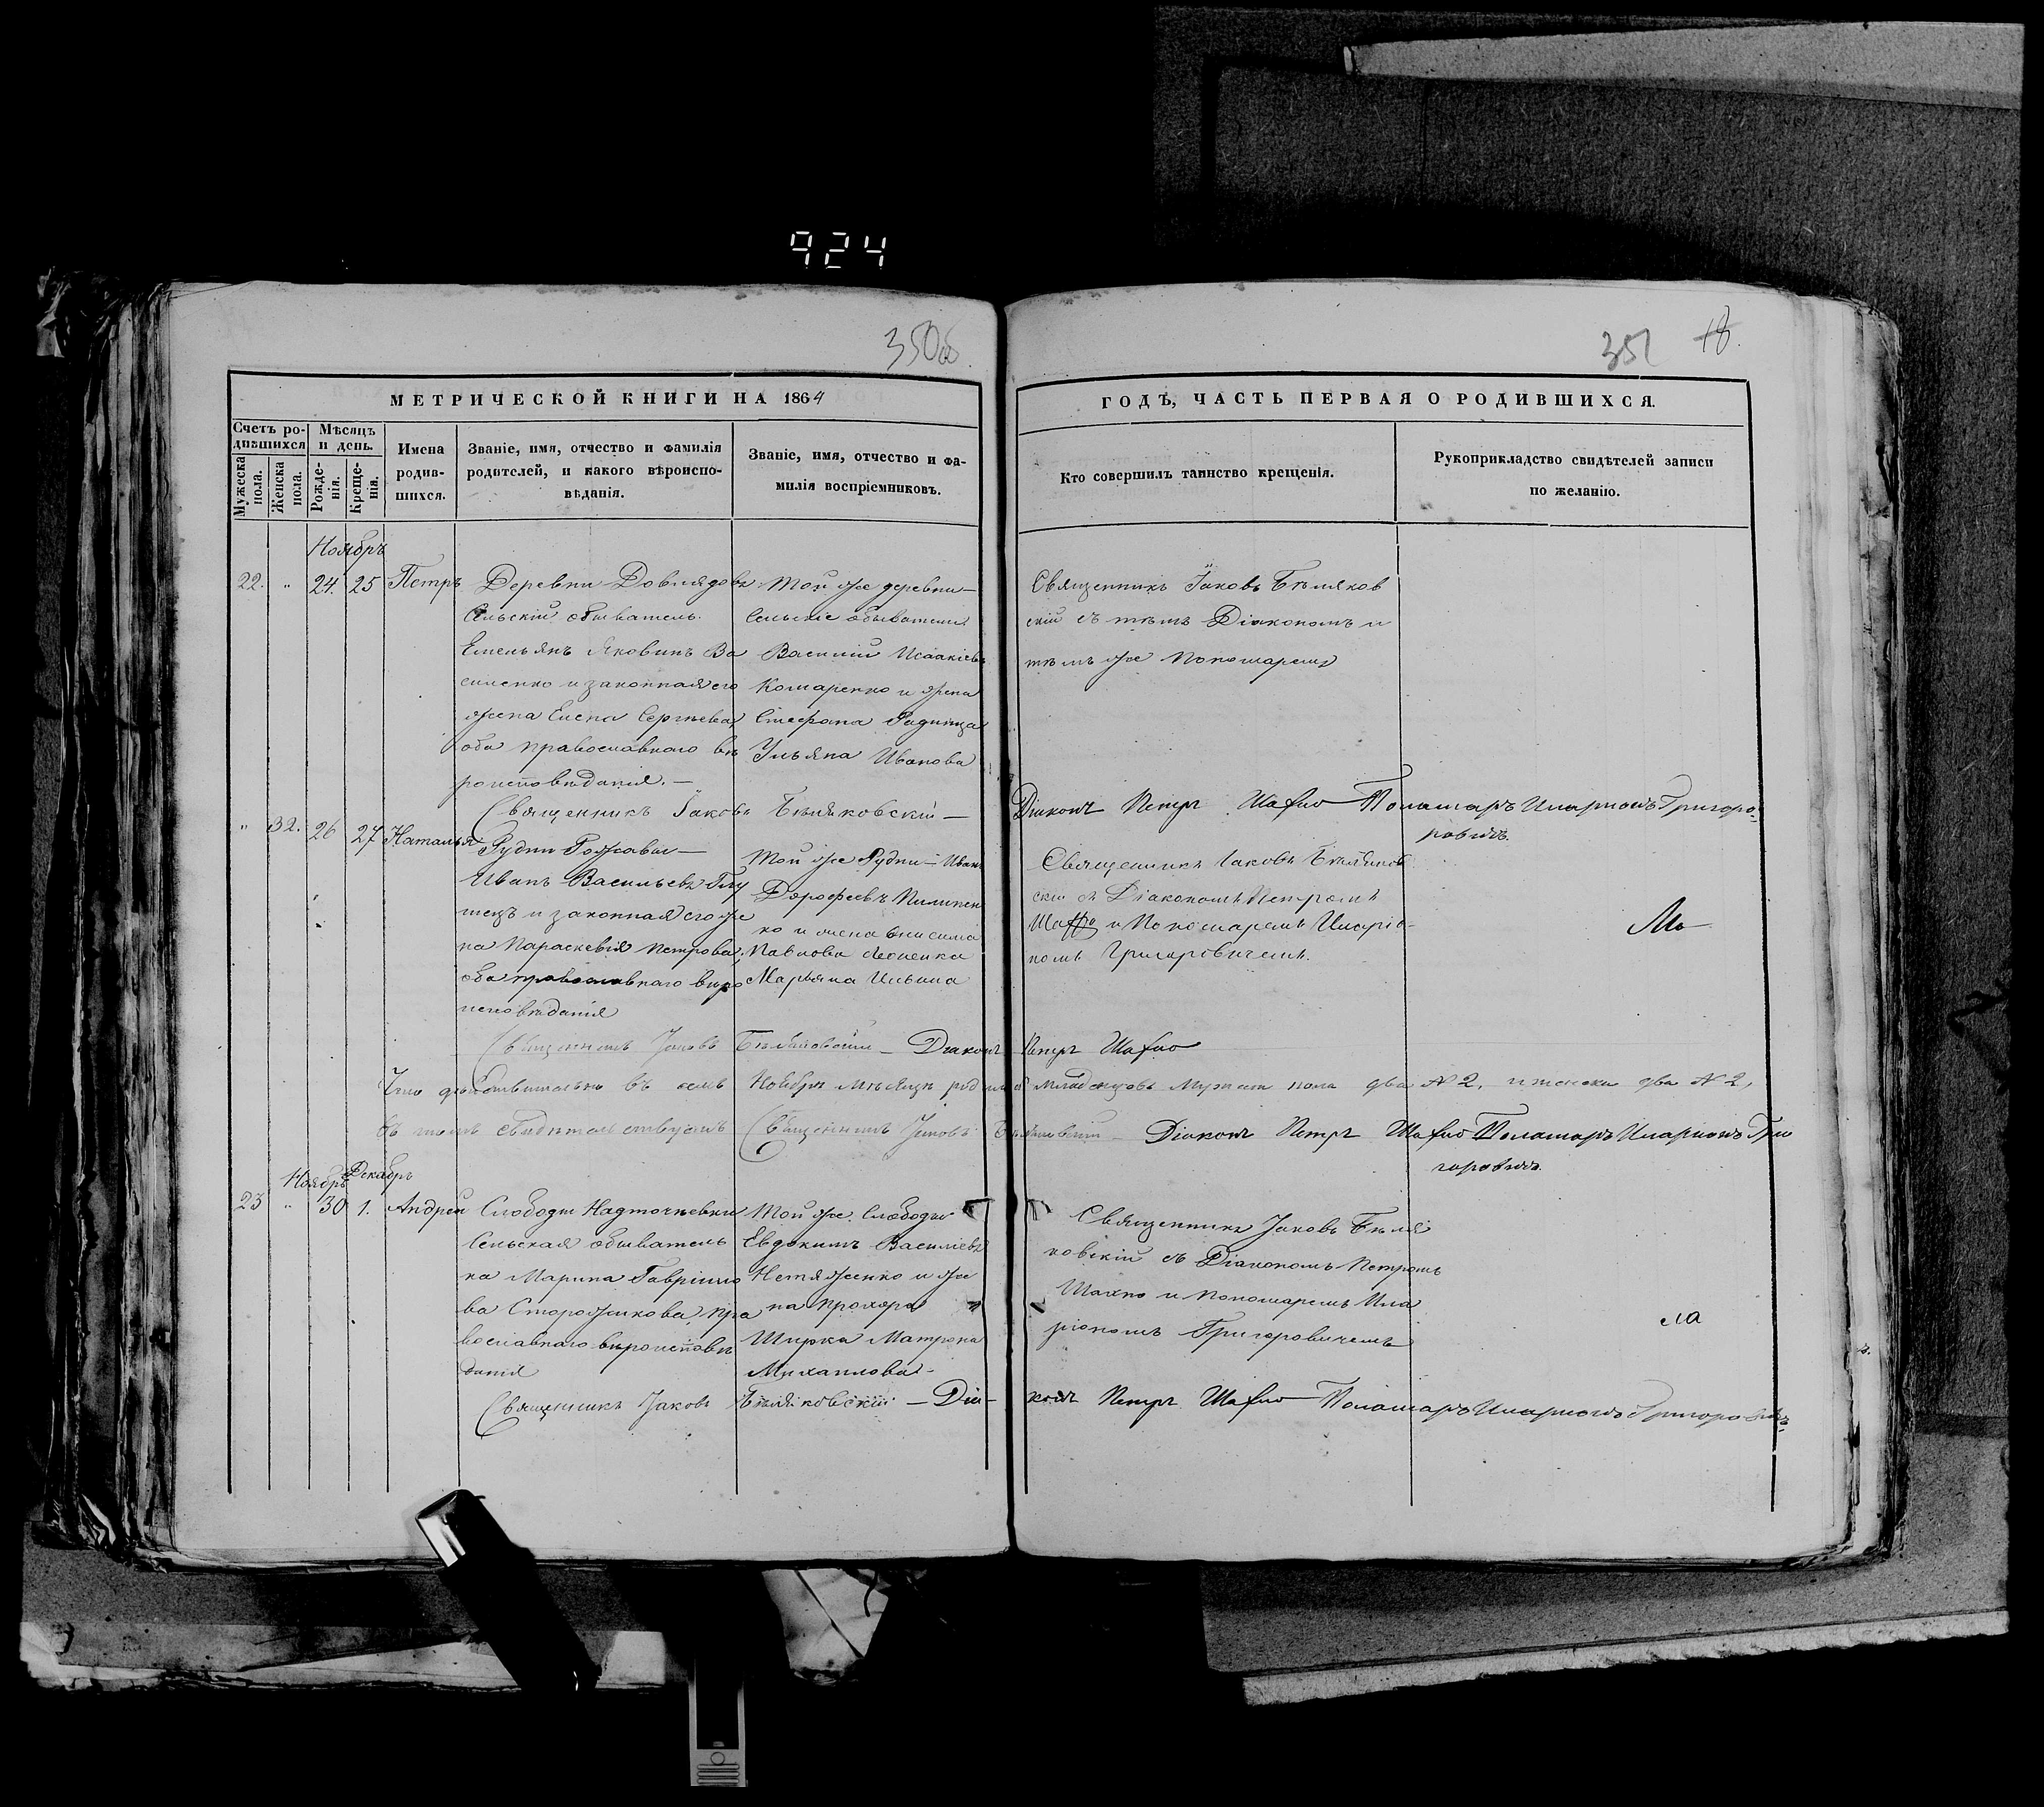 924
350об
351 18.
МЕТРИЧЕСКОЙ КНИГИ НА 1864
ГОДЪ, ЧАСТЬ ПЕРВАЯ О РОДИВШИХСЯ.
Счетъ ро-
дившихся
Мѣсяцъ
и день.
Мужеска
пола.
Женска
пола.
Рожде-
нія.
Креще-
нія.
Имена
родив-
шихся.
Званіе, имя, отчество и фамилія
родителей, и какого вѣроиспо-
вѣданія.
Званіе, имя, отчество и фа-
милія воспріемниковъ.
Кто совершилъ таинство крещенія.
Рукоприкладство свидѣтелей записи
по желанію.
Ноябрь
22. " 24. 25 Петръ
Деревни
Сельскій обыватель
Емельянъ Яковинъ Ва
силенко и законная его
жена Елена Сергѣева,
оба православнаго вѣ
роисповѣданія. —
Той же деревни —
Сельскіе обыватели
Василій Исаакіевъ
Комаренко и жена
Стефана
Ульяна Иванова
Священникъ Іаковъ Бѣляков
скій съ тѣмъ Діакономъ и
тѣмъ же Пономаремъ
Священникъ Іаковъ Бѣляковскій — Діаконъ Петръ Махно Пономарь Иларіонъ Григоро-
ровичъ.
" 32. 26 27 Наталья
Рудни —
Иванъ Васильевъ
и законная его же
на Параскевія Петрова,
оба православнаго вѣро
исповѣданія
Той же Рудни — Иванъ
Дорофеевъ Пилипен
ко и жена
Павлова
Марьяна Ильина
Священникъ Іаковъ Бѣляков
скій съ Діакономъ Петромъ
и Пономаремъ Иларіо-
номъ Григоровичемъ.
Священникъ Іаковъ Бѣляковскій — Діаконъ Петръ Махно
Что дѣйствительно въ семъ Ноябрѣ мѣсяцѣ младенцовъ мужеска пола два № 2, и женска два № 2,
въ томъ свидѣтельствуемъ Священникъ Іаковъ Бѣляковскій — Діаконъ Петръ Махно Пономарь Иларіонъ Гри
горовичъ.
Ноябрь Декабрь
23 " 30 1. Андрей
Слободы Надточіевки
Сельская обыватель
ка Марина Гавріило
ва Сторожикова, пра
вославнаго вѣроисповѣ
данія
Той же Слободы
Евдокимъ Василіевъ
Нетяженко и же
на Прохора
Матрона
Михаилова —
Священникъ Іаковъ Бѣля
ковскій съ Діакономъ Петромъ
Махно и Пономаремъ Ила
ріономъ Григоровичемъ
Священникъ Іаковъ Бѣляковскій — Діа-
конъ Петръ Махно Пономарь Иларіонъ Григоровичъ